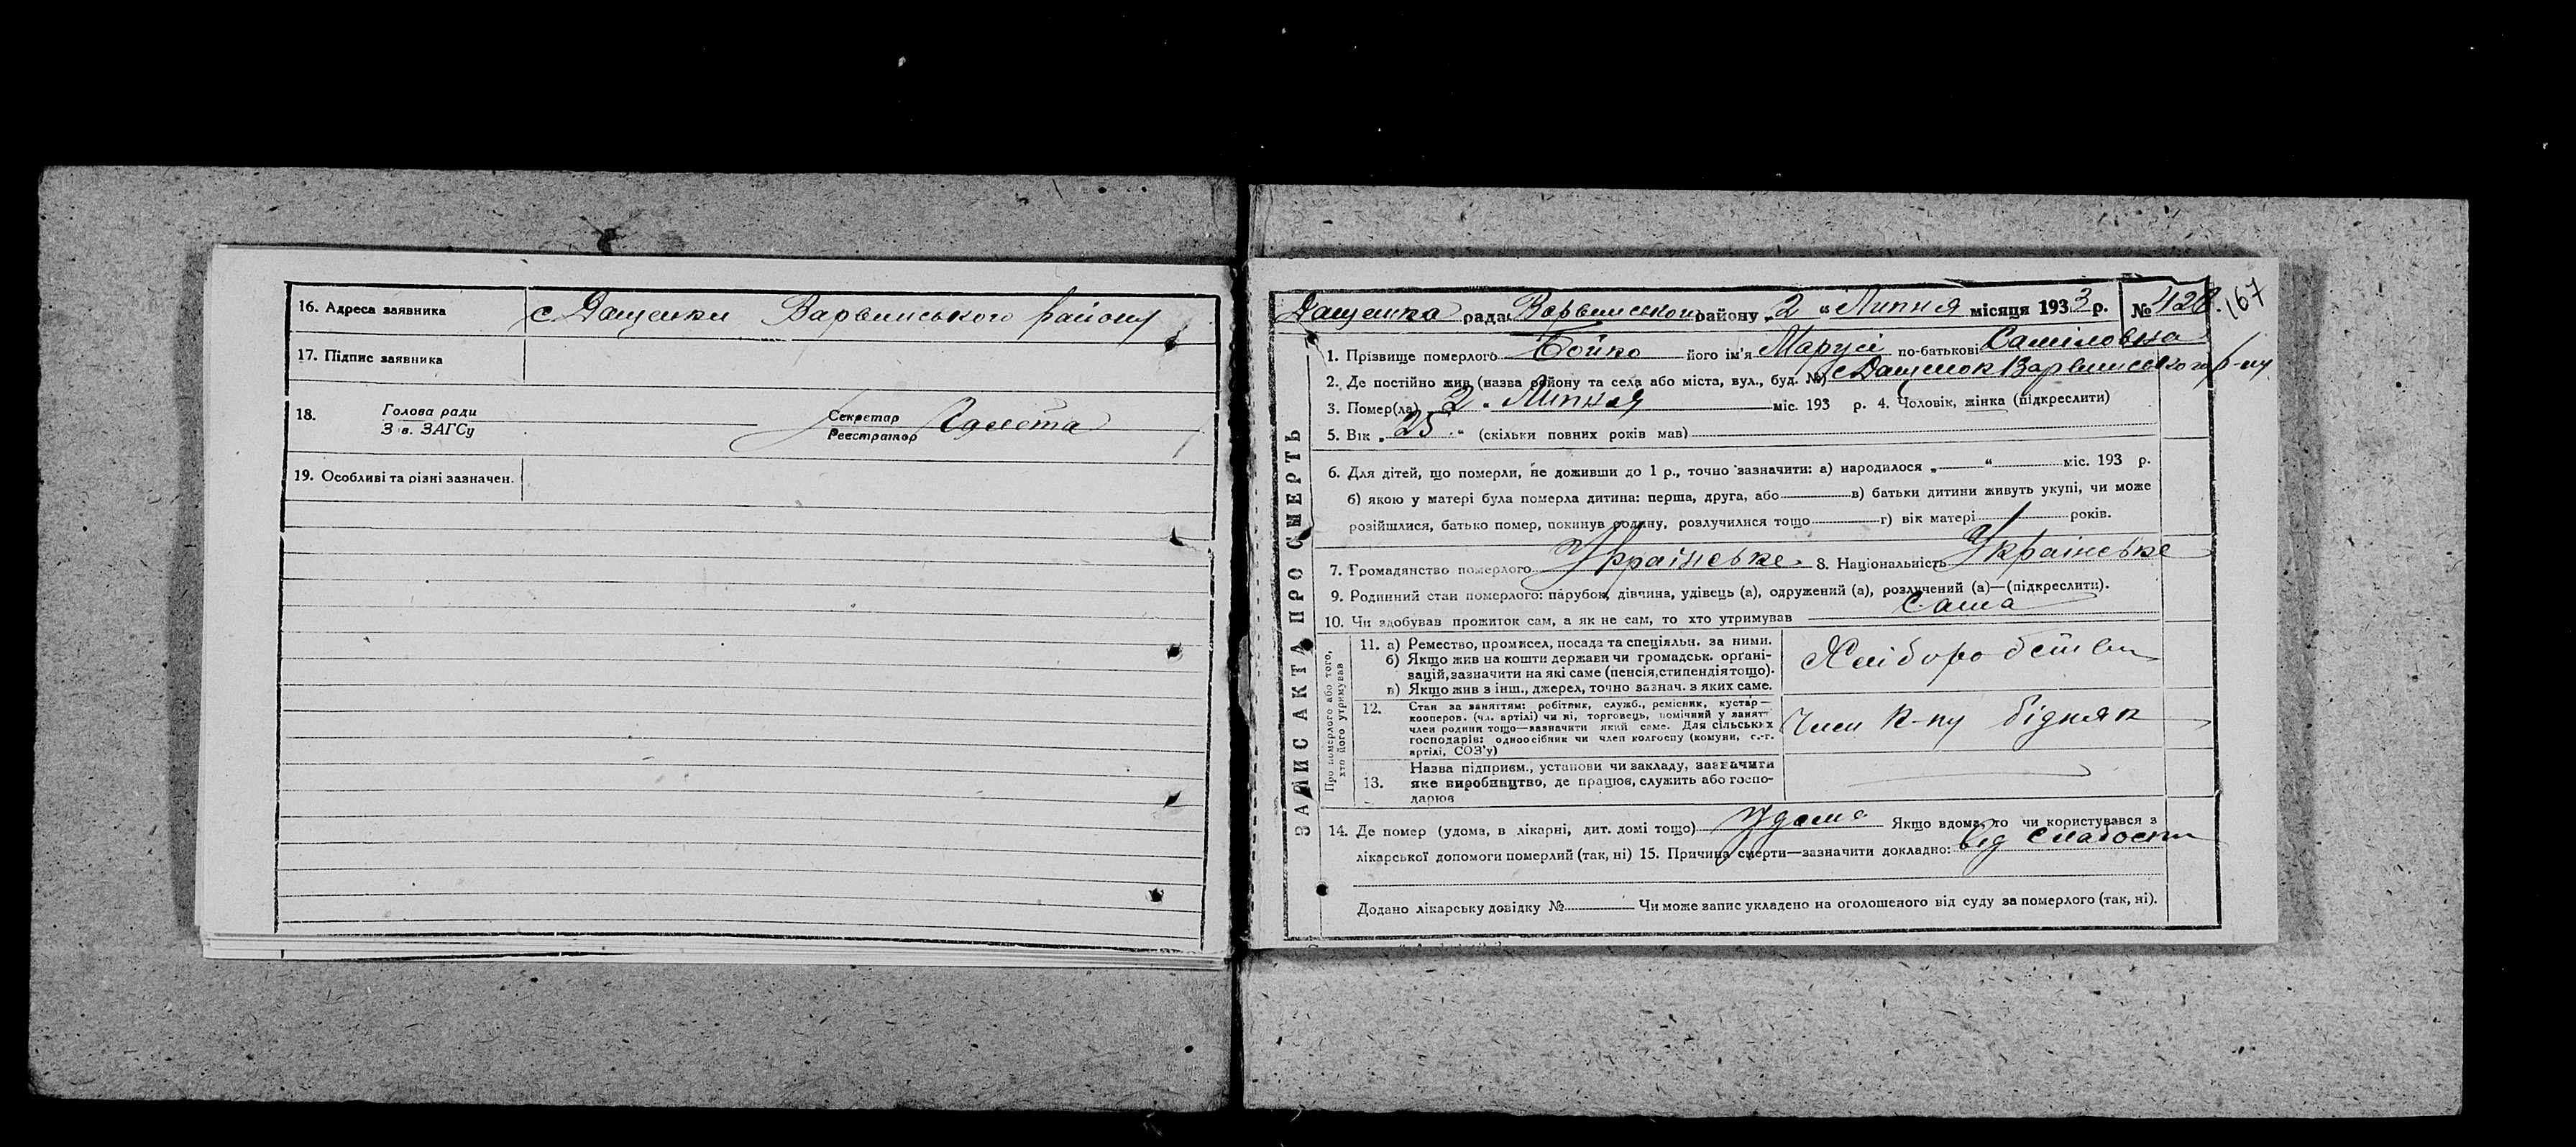 16. Адреса заявника с Дащенки Варвинського району
17. Підпис заявника
18. Голова ради Секретар
Зав. ЗАГСу Реєстратор Галета
19. Особливі та різні зазначен.
Дащенка рада Варвинського району „2“ Липня місяця 1933 р. № 428. 167
ЗАПИС АКТА ПРО СМЕРТЬ
1. Прізвище померлого Бойко його ім'я Марусі по-батькові Саміловна
2. Де постійно жив (назва району та села або міста, вул., буд. №) с Дащенок Варвинського р-ну
3. Помер(ла) 2 „ Липня міс. 193 р. 4. Чоловік, жінка (підкреслити)
5. Вік „25“ (скільки повних років мав)
6. Для дітей, що померли, не доживши до 1 р., точно зазначити: а) народилося „ “ міс. 193 р.
б) якою у матері була померла дитина: перша, друга, або в) батьки дитини живуть укупі, чи може
розійшлися, батько помер, покинув родину, розлучилися тощо г) вік матері років.
7. Громадянство померлого Українське 8. Національність Українське
9. Родинний стан померлого: парубок, дівчина, удівець (а), одружений (а), розлучений (а)—(підкреслити).
10. Чи здобував прожиток сам, а як не сам, то хто утримував Сама
Про померлого або того,
хто його утримував
11. а) Ремество, промисел, посада та спеціяльн. за ними.
б) Якщо жив на кошти держави чи громадськ. організ-
вацій, зазначити на які саме (пенсія, стипендія тощо).
в) Якщо жив з інш., джерел, точно зазнач. з яких саме.
Хліборобством
12. Стан за заняттям: робітник, служб., ремісник, кустар—
кооперов. (чл. артілі) чи ні, торговець, помічний у занят.
член родини тощо—зазначити який саме. Для сільських
господарів: одноосібник чи член колгоспу (комуни, с.-г.
артілі, СОЗ'у)
Член К-пу бідняк
13. Назва підприєм., установи чи закладу, зазначити
яке виробництво, де працює, служить або госпо-
дарює
14. Де помер (удома, в лікарні, дит. домі тощо) Удома Якщо вдома, то чи користувався з
лікарської допомоги померлий (так, ні) 15. Причина смерти—зазначити докладно: від слабости
Додано лікарську довідку № Чи може запис укладено на оголошеного від суду за померлого (так, ні).